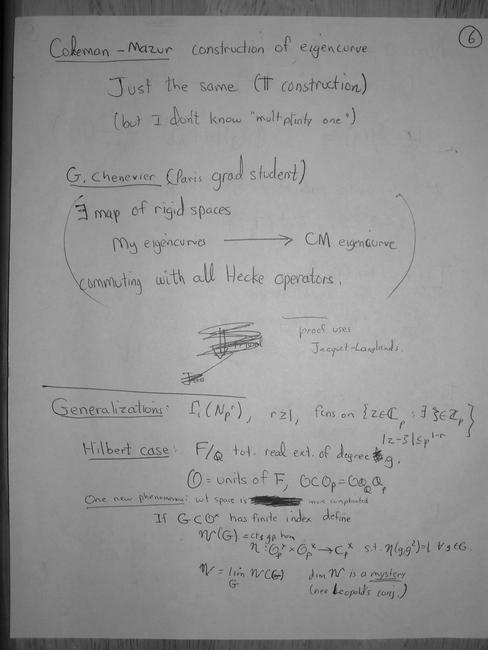 6
Coleman - Mazur construction of eigencurve
Just the same (π construction)
(but I don't know "multplinty one")
G. Chenevier (Paris grad student)
∃ map of rigid spaces
My eigencurves ⟶ CM eigencurve
commuting with all Hecke operators.
proof uses
Jacquet-Langlands.
Generalizations: Γ₁(Npʳ), r≥1, fcns on {z∈ℂₚ : ∃ ξ∈ℤₚ
|z-ξ|≤p^{1-r}}
Hilbert case: F/ℚ tot. real ext. of degree g.
O = units of F, O⊂Oₚ=O⊗ℚₚ
One new phenomenon: wt space is more complicated
If G⊂O^x has finite index define
W(G) = cts gp hom
η: Oₚ^x × Oₚ^x → ℂₚ^x s.t. η(g,g²)=1 ∀ g∈G.
W = lim W(G) dim W is a mystery
G (nee Leopoldt's conj.)